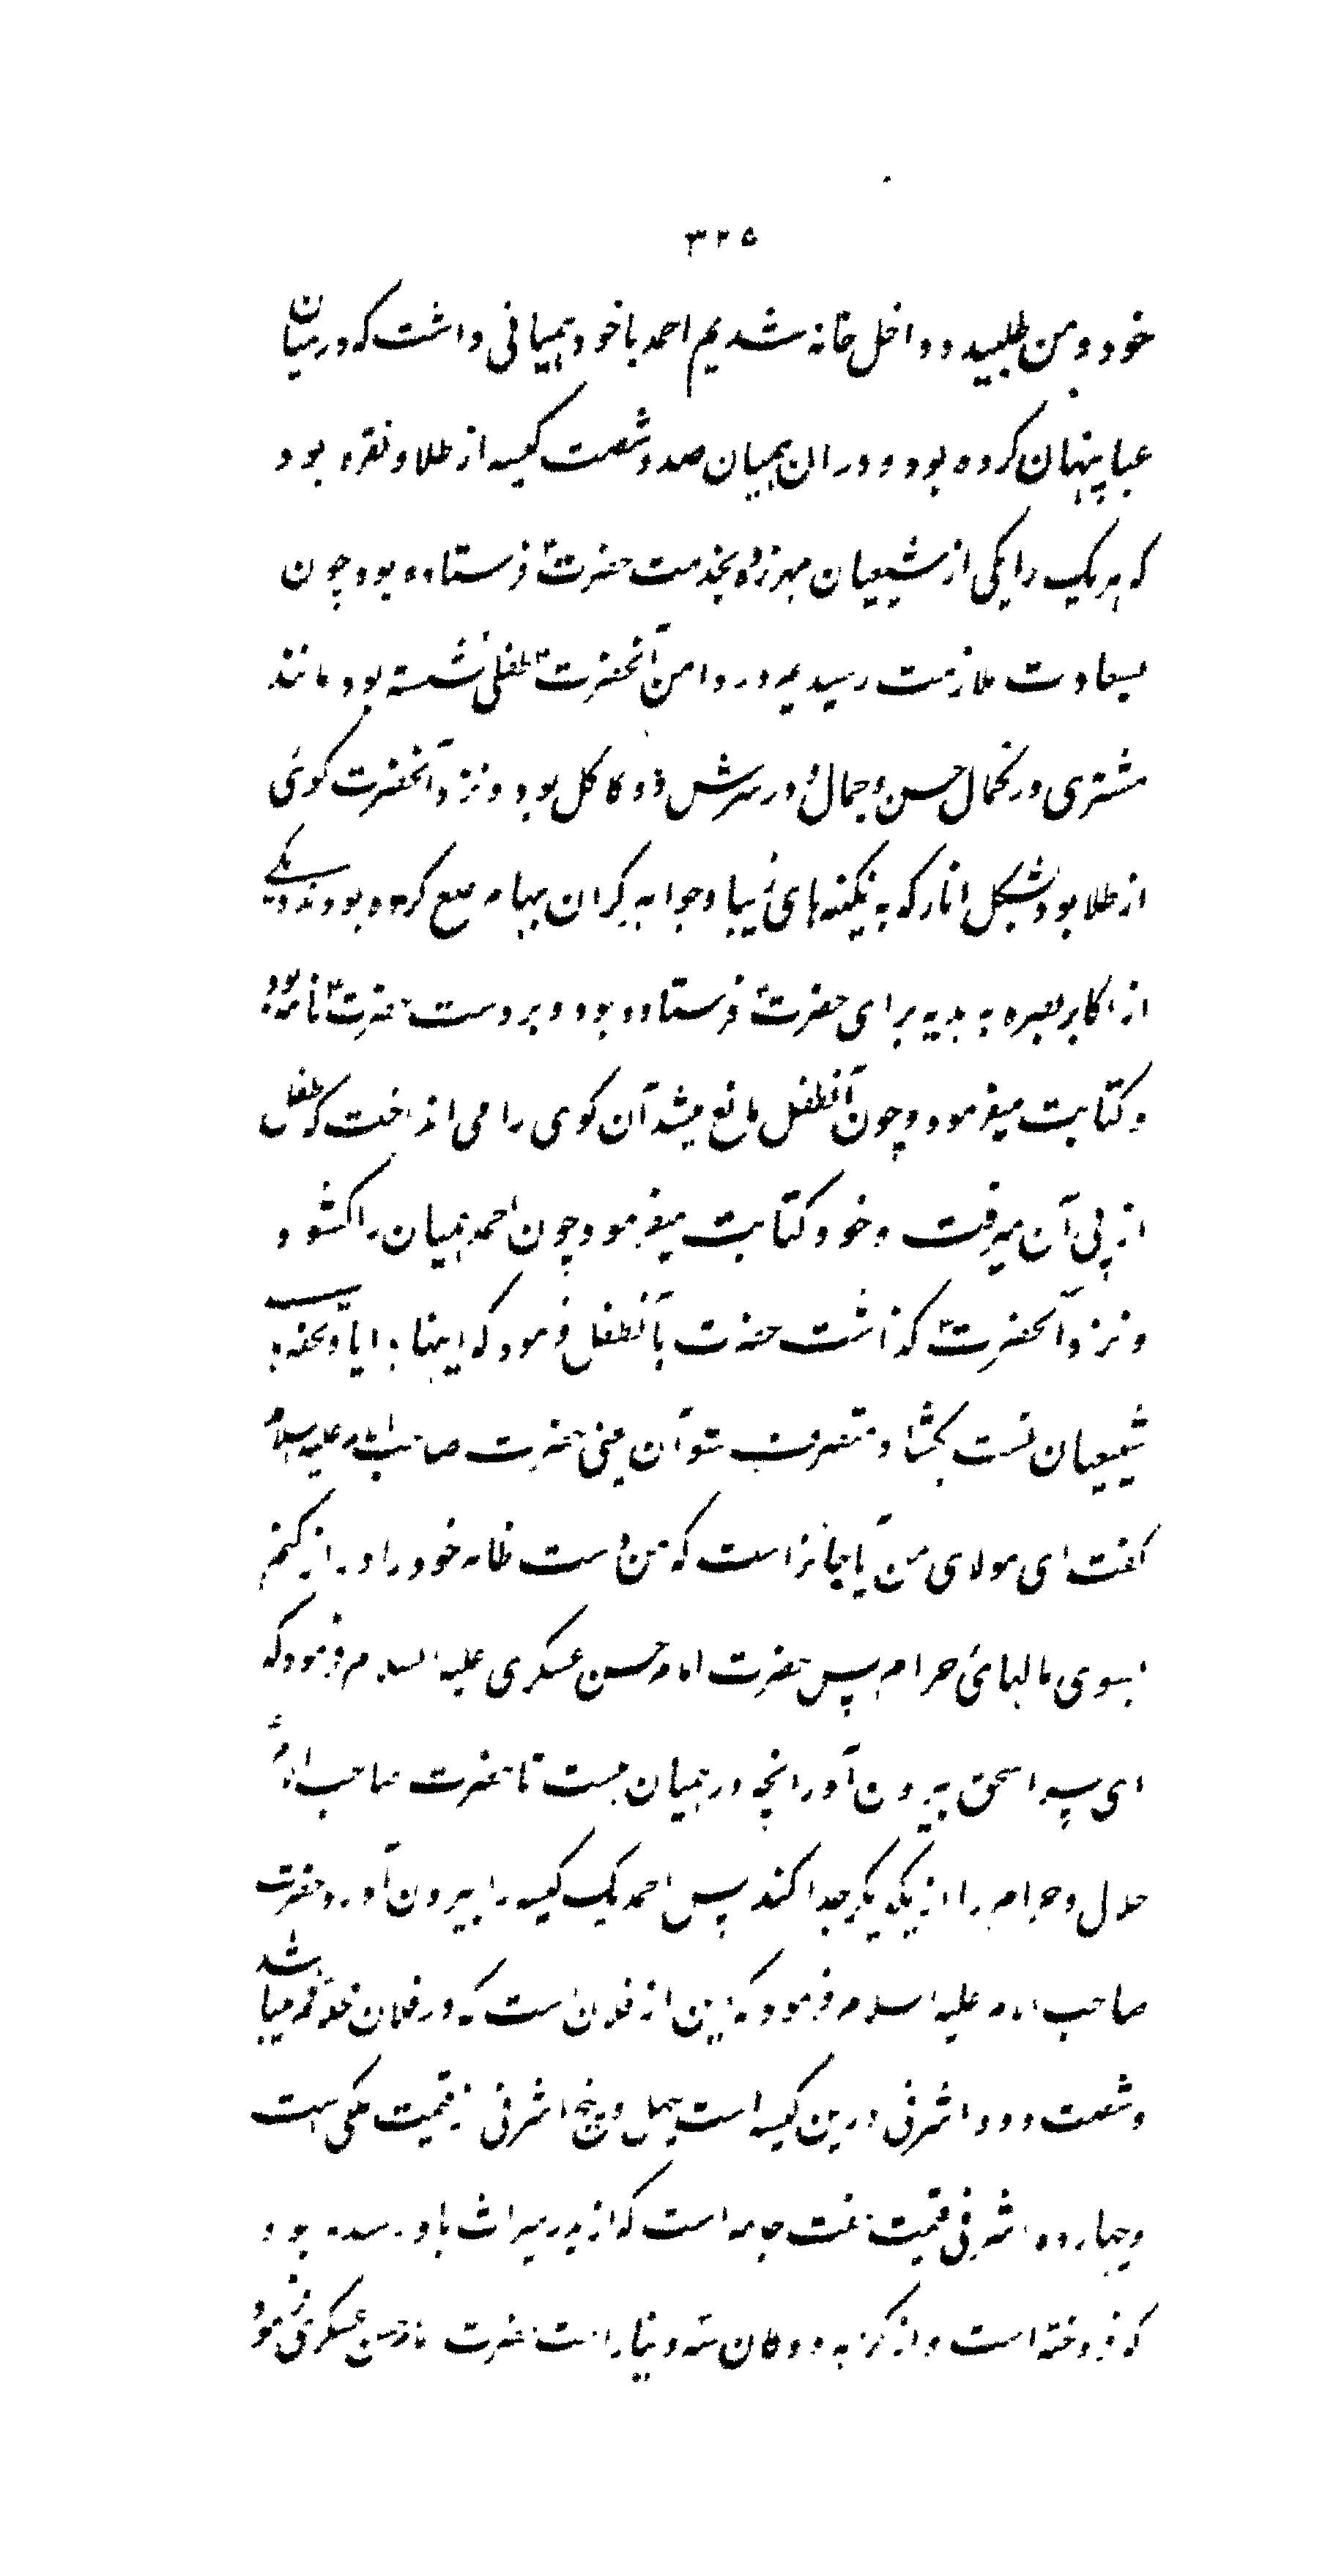 ۳۲۵
خود و من طلبید و داخل خانه شدیم احمد با خود همیانی داشت که در میان
عبا پنهان کرده بود و در ان همیان صد و شصت کیسه از طلا و نقره بود
که هر یک را یکی از شیعیان مهر زده بخدمت حضرت فرستاده بود چون
بسعادت ملازمت رسیدیم در دامن آنحضرت طفلی نشسته بود مانند
مشتری در کمال حسن و جمال و در سرش دو کاکل بود و نزد آنحضرت کوئی
از طلا بود بشکل انار که به نکینه های زیبا و جواهر کران بها مرصع کرده بودند و یکی
از اکابر بصره به هدیه برای حضرت فرستاده بود و بر دست حضرت نامه بود
و کتابت میفرمود و چون آنطفل مانع میشد آن کوی را می انداخت که طفل
از پی آن میرفت و خود کتابت میفرمود چون احمد همیان را کشود
و نزد آنحضرت کذاشت حضرت بآنطفل فرمود که اینها هدایا و تحفه های
شیعیان تست بکشا و متصرف شو آن یعنی حضرت صاحب الامر علیه السلام
کفت ای مولای من آیا جائز است که من دست طاهر خود را دراز کنم
بسوی مالهائ حرام پس حضرت امام حسن عسکری علیه السلام فرمود که
ای پسر اسحق بیرون آور انچه در همیان هست تا حضرت صاحب الامر
حلال و حرام را از یکدیکر جدا کند پس احمد یک کیسه را بیرون آورد حضرت
صاحب الامر علیه السلام فرمود که این از فلان است که در فلان محله قم میباشد
و شصت و دو اشرفی درین کیسه است چهل و پنج اشرفی از قیمت ملکی است
و چهارده اشرفی قیمت هفت جامه است که از پدر میراث باو رسیده بود
که فروخته است و از کرایه دوکان سه دینار است حضرت امام حسن عسکری فرمود